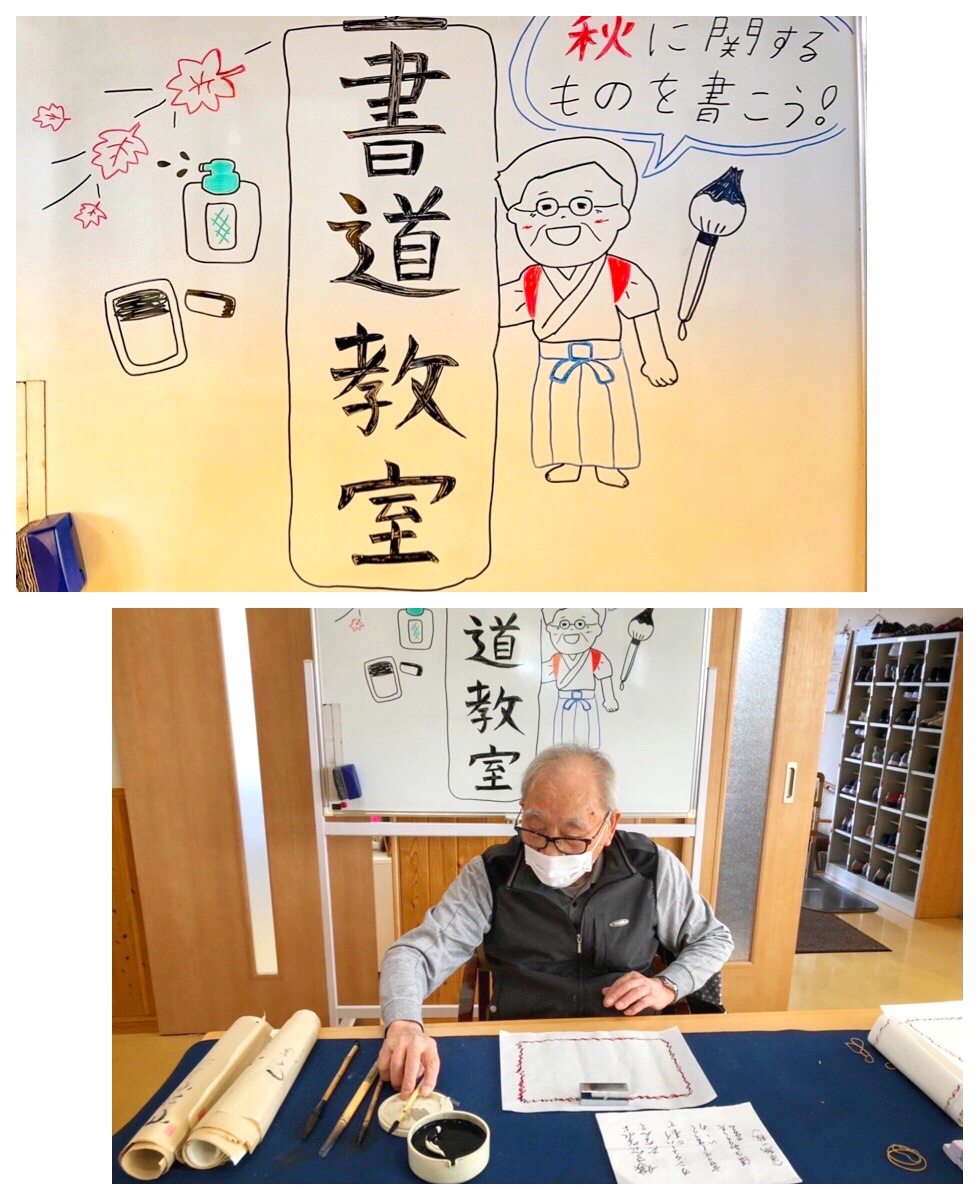 書道教室
秋に関する
ものを書こう!
道教室